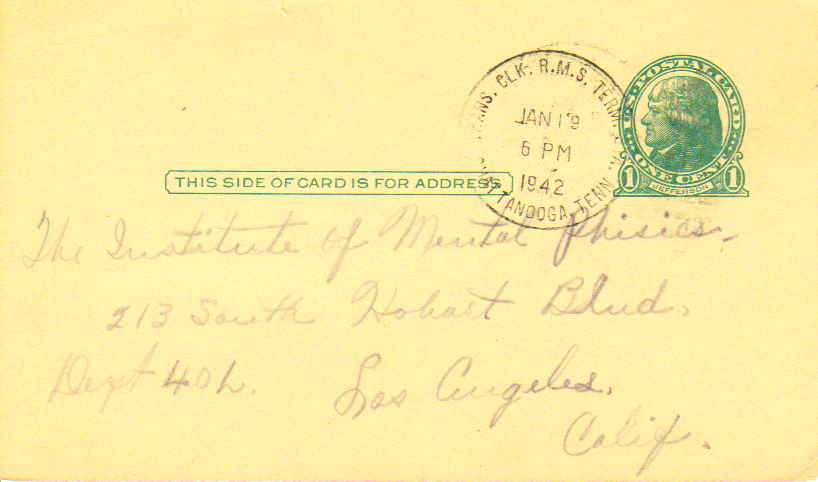 TRANS. CLK. R.M.S. TERM.
JAN 19
6 PM
1942
CHATTANOOGA, TENN.
U.S. POSTAL CARD
ONE CENT
1 JEFFERSON 1
THIS SIDE OF CARD IS FOR ADDRESS
The Institute of Mental Phisics
213 South Hobart Blvd.
Dept 40L.
Los Angeles,
Calif.